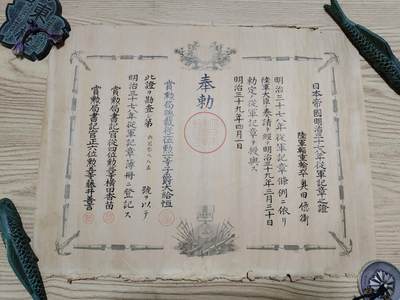 日本帝國明治三十七八年從軍記章之證
陸軍輜重輸卒 奥田
明治三十七八年從軍記章條例ニ依リ
陸軍大臣ノ奏請ヲ經テ明治三十九年三月三十日
勅定ノ從軍記章ヲ授與ス
明治三十九年四月一日
奉勅
賞勲局總裁從二位勲一等子爵大給恒
此證ヲ勘査シ第 號ヲ以テ
明治三十七八年從軍記章簿册ニ登記ス
賞勲局書記官從四位勲三等横田香苗
賞勲局書記官正六位勲六等藤井善言